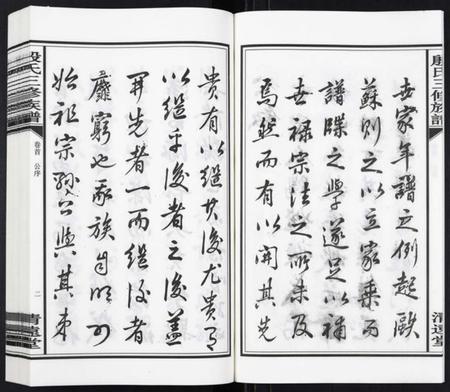 世家年譜之例起歐
蘇則之以立家乘而
譜牒之學遂足以補
世祿宗法之所未及
焉然而有以開其先
殷氏三修族譜
清遠堂
貴有以繼其後尤貴有
以繼乎後者之後蓋
開先者一而繼後者
靡窮也我族自明初
始祖宗孫公與其弟
殷氏三修族譜
卷首 公序
二
清遠堂